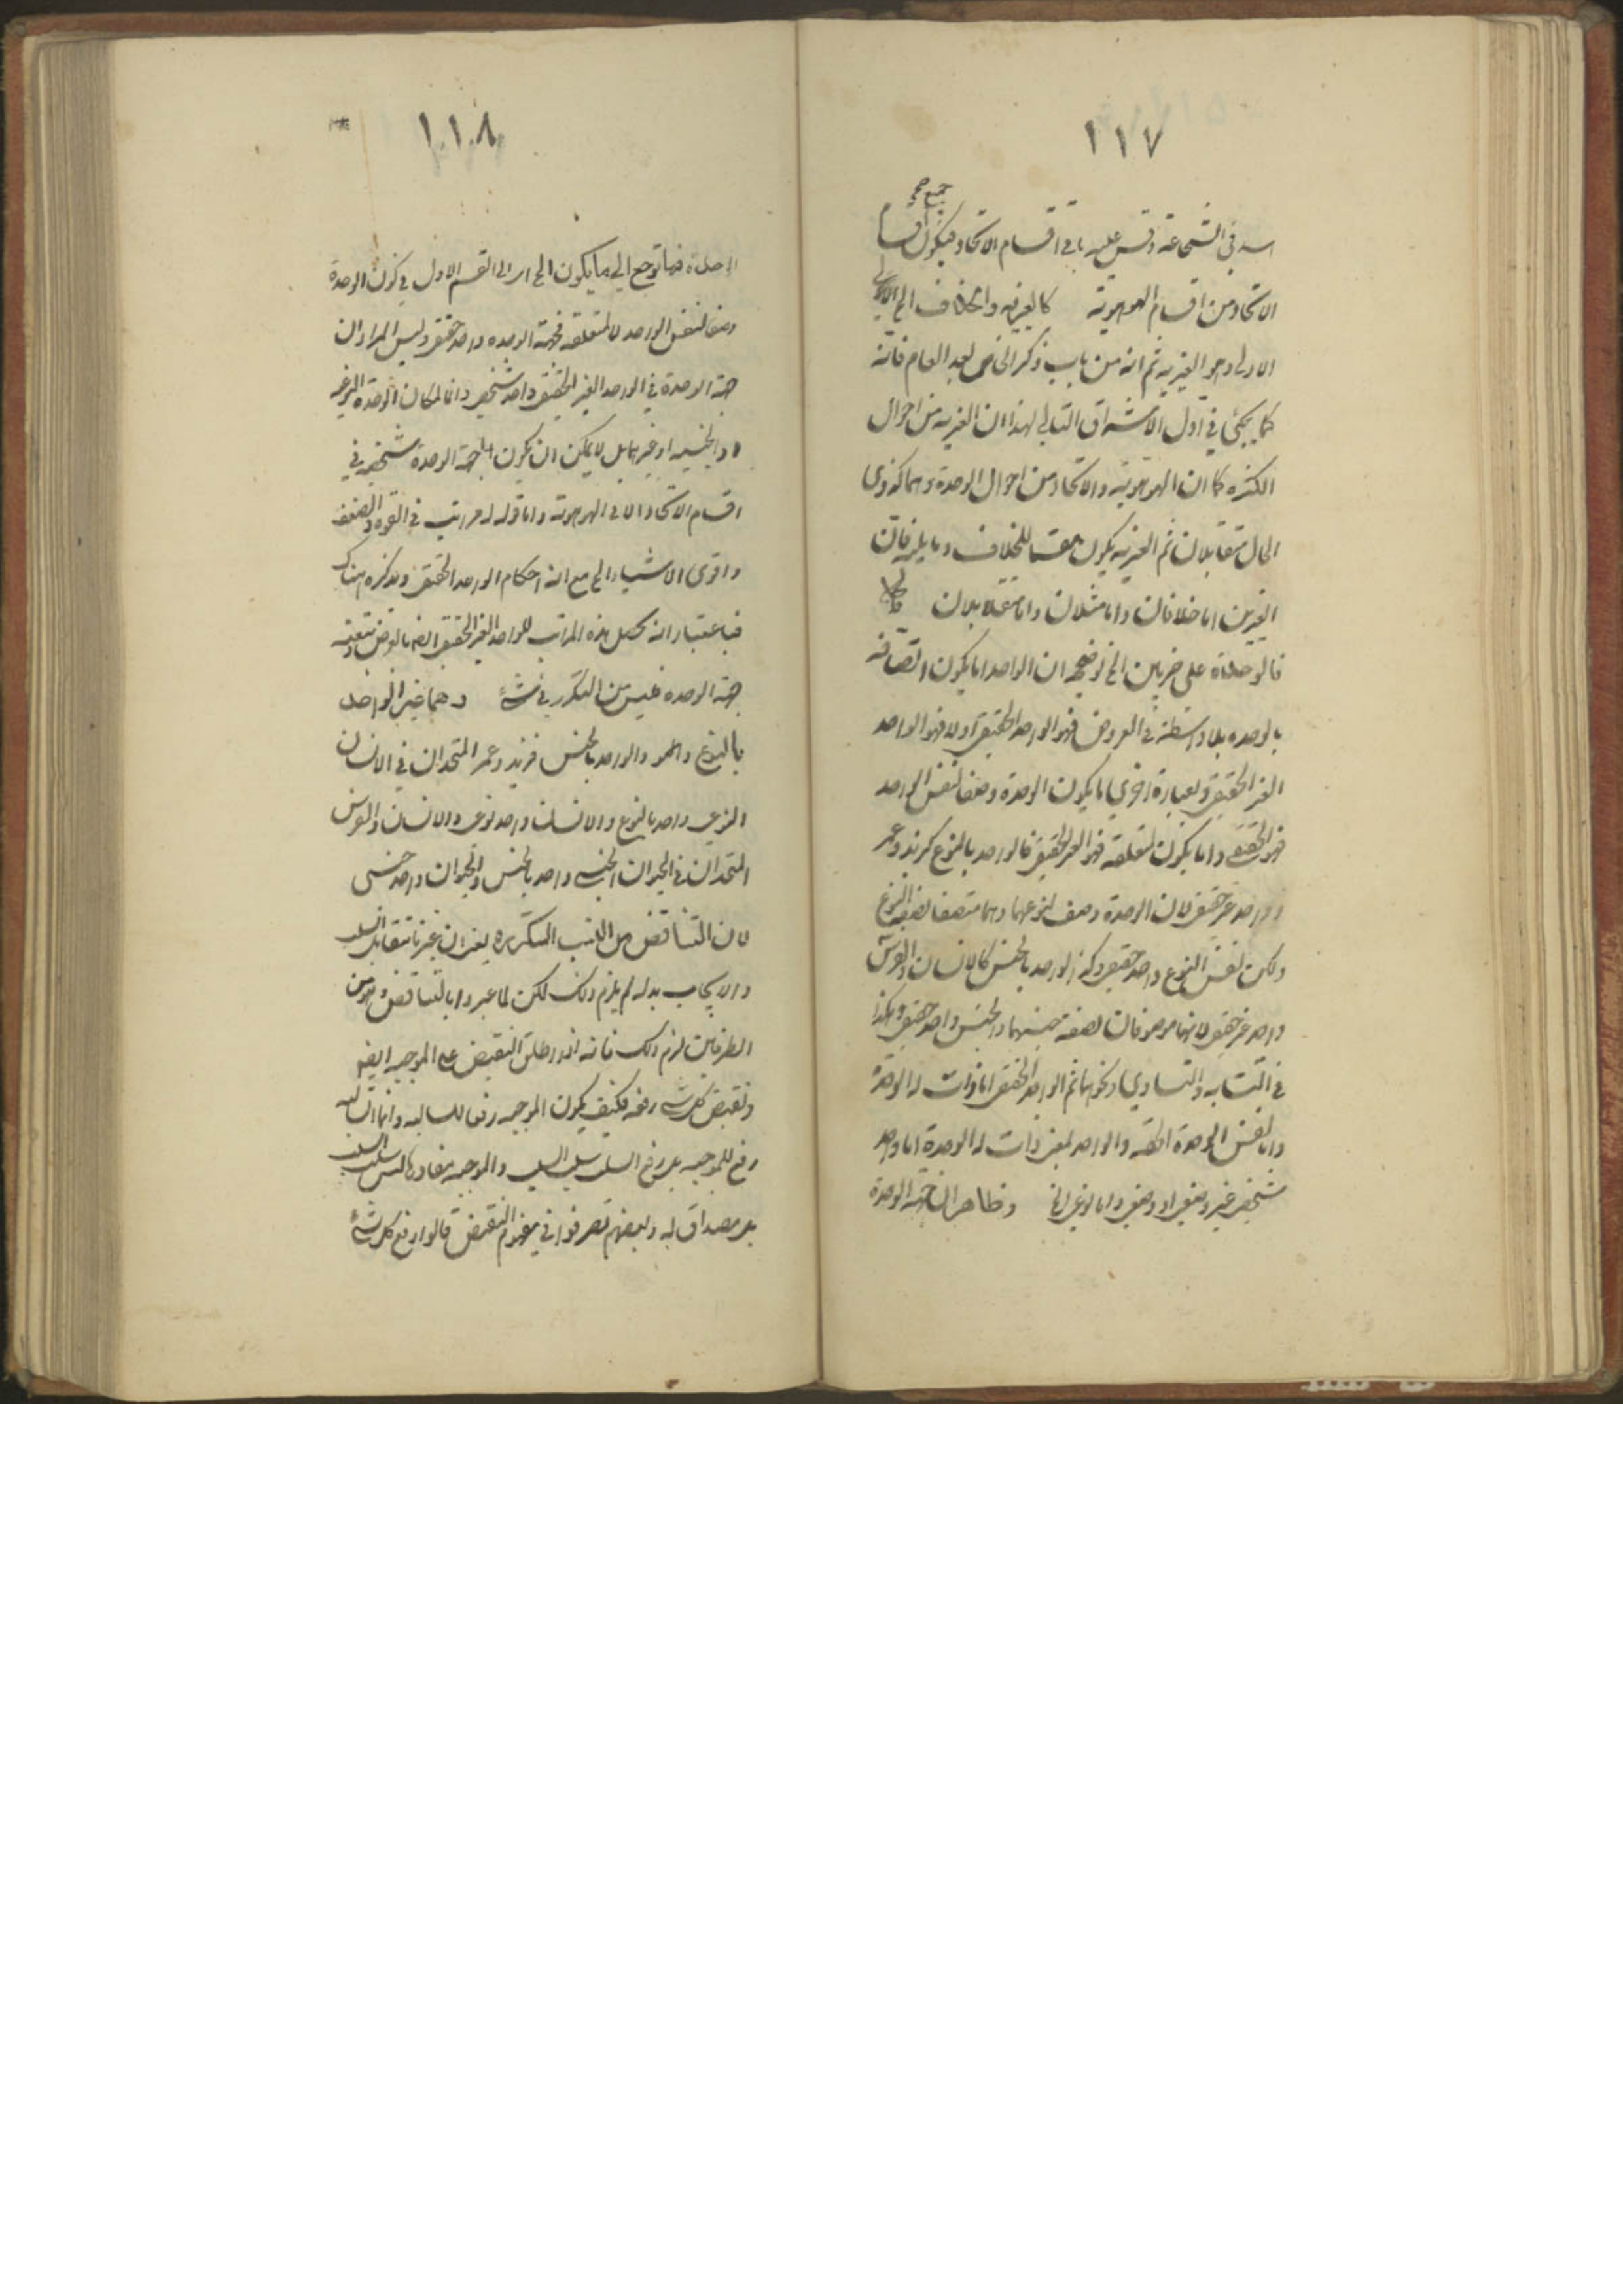 ١١٧
جميع
اسد في الشجاعة وقس عليه باقي اقسام الاتحاد فيكون اقسام
الاتحاد من اقسام الهوهوية كالغيرية والخلاف الخ الاولى
الاولى وهو الغيرية ثم انه من باب ذكر الخاص بعد العام فانه
كما يجئ في اول الاشراق التالي لهذا ان الغيرية من احوال
الكثرة كما ان الهوهوية والاتحاد من احوال الوحدة وهما كذوى
الحال متقابلان ثم الغيرية يكون مقسما للخلاف وما يليه فان
الغيرين اما خلافان واما مثلان واما متقابلان
فالوحدة على ضربين الخ توضيحه ان الواحد اما يكون اتصافه
بالوحده بلا واسطة في العروض فهو الواحد الحقيقي اولا فهو الواحد
الغير الحقيقي وبعبارة اخرى اما يكون الوحدة وصفا لنفس الواحد
فهو الحقيقي واما يكون لمتعلقه فهو الغير الحقيقي فالواحد بالنوع كزيد وعمر
واحد غير حقيقي لان الوحدة وصف لنوعهما وهما متصفا بصفة النوع
ولكن نفس النوع واحد حقيقي وكذا الواحد بالجنس كالانسان والفرس
واحد غير حقيقي لانهما موصوفان بصفة جنسهما والجنس واحد حقيقي وهكذا
في التشابه والتساوي ونحوهما ثم الواحد الحقيقي اما ذات له الوحدة
واما نفس الوحدة الحقه والواحد بمعنى ذات له الوحدة اما واحد
شخصي غير وضعي او وضعي واما نوعي الخ وظاهر ان جهة الوحدة
١١٨
الوحدة فيما ترجع الى ما يكون الخ اى الى القسم الاول في كون الوحدة
وصفا لنفس الواحد لا لمتعلقه فجهة الوحده واحد حقيقي وليس المراد ان
جهة الوحدة في الواحد الغير الحقيقي واحد شخصي دائما لمكان الوحدة النوعيه
والجنسيه او غيرهما بل لا يمكن ان يكون جهة الوحدة شخصيه في
اقسام الاتحاد الا في الهوهوية واما قوله له مراتب في القوه والضعف
واقوى الاشياء الخ مع انه احكام الواحد الحقيقي ويذكره هناك
فباعتبار انه يحصل هذه المراتب للواحد الغير الحقيقي ايضا بالعرض بتبعية
جهة الوحده فليس من التكرر في شئ وهما غير الواحد
بالنوع والواحد بالجنس فزيد وعمر المتحدان في الانسان
النوعي واحد بالنوع والانسان واحد نوعى والانسان والفرس
المتحدان في الحيوان الجنسي واحد بالجنس والحيوان واحد جنسى
لان التناقض من النسب المتكررة يعنى ان عبرنا بتقابل السلب
والايجاب بدله لم يلزم ذلك لكن لما عبروا بالتناقض وهو من
الطرفين لزم ذلك فانه اذن اطلق النقيض على الموجبه ايضا
ونقيض كل شئ رفعه فكيف يكون الموجبه رفعا للسالبه وانما السالبه
رفع للموجبه بل رفع السلب سلب السلب والموجبه مفادها ليس سلب السلب
بل مصداق له وبعضهم تصرفوا في مفهوم النقيض قالوا رفع كل شئ